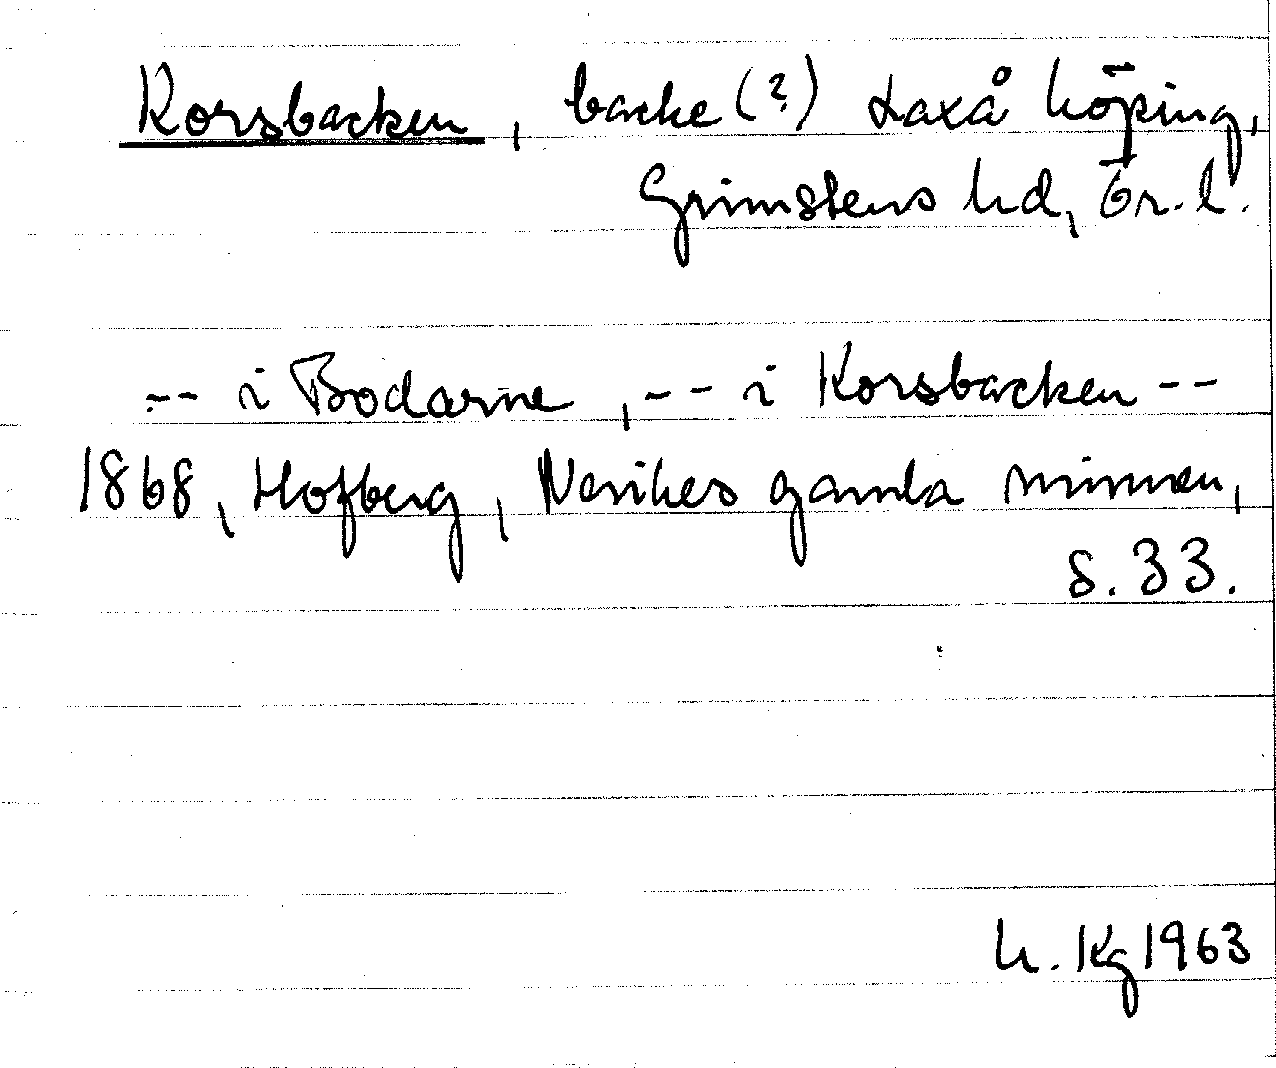 Korsbacken, backe (?) Laxå köping,
Grimstens hd, Ör. l.
-- i Bodarne, -- i Korsbacken --
1868, Hofberg, Nerikes gamla minnen,
s. 33.
h. Kg 1963